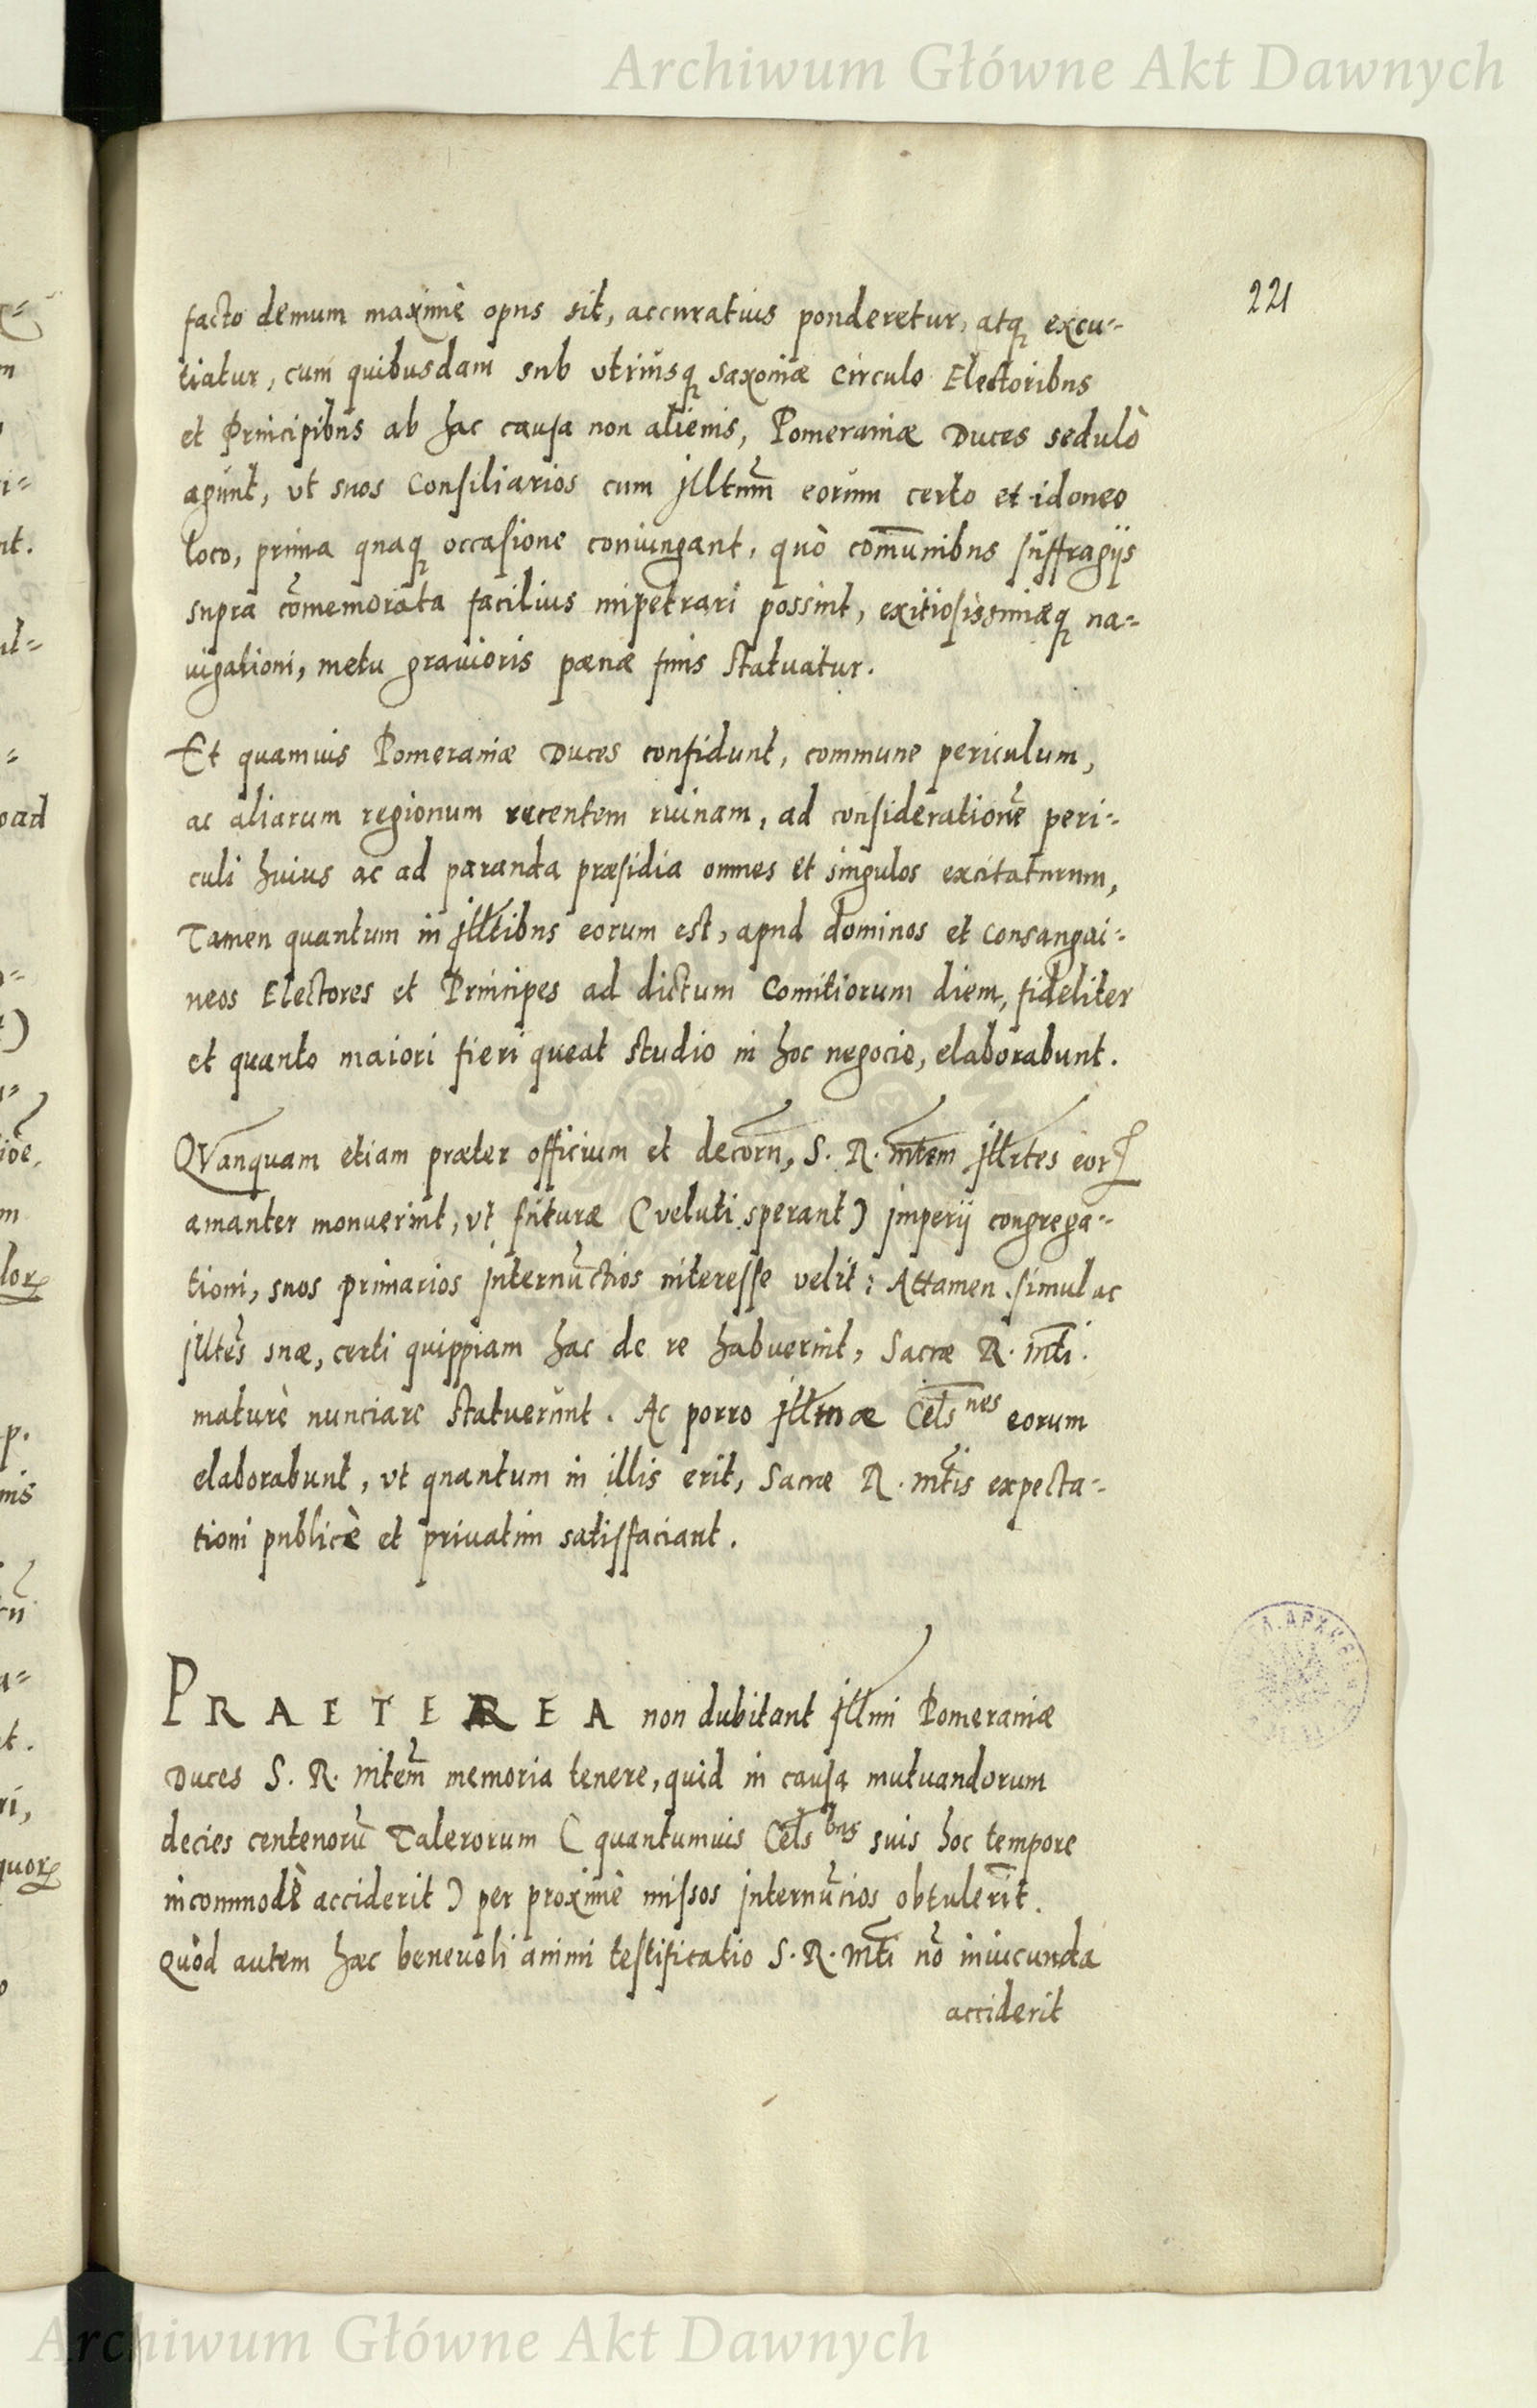 Archiwum Główne Akt Dawnych
221
facto demum maximè opus sit, accuratius ponderetur, atq; excu-
tiatur, cum quibusdam sub vtriusq; Saxoniæ Circulo Electoribus
et Principibus ab hac causa non alienis, Pomeraniæ Duces sedulò
agunt, vt suos Consiliarios cum Jlltum̄ eorum certo et idoneo
loco, prima quaq; occasione coniungant, quò com̄unibus suffragijs
supra com̄emorata facilius impetrari possint, exitiosissimæq; na-
uigationi, metu grauioris pænæ finis statuatur.
Et quamuis Pomeraniæ Duces confidunt, commune periculum,
ac aliarum regionum recentem ruinam, ad consideratione᷄ peri-
culi huius ac ad paranda præsidia omnes et singulos excitaturum,
Tamen quantum in Jlltibus eorum est, apud dominos et Consangui-
neos Electores et Principes ad dictum Comitiorum diem, fideliter
et quanto maiori fieri queat studio in hoc negocio, elaborabunt.
QVanquam etiam præter officium et decorū, S. R. mtem Jllrtes eorꝝ
amanter monuerint, vt futuræ (veluti sperant) Jmperij congrega-
tioni, suos primarios Jnternunctios interesse velit: Attamen simul ac
Jlltes suæ, certi quippiam hac de re habuerint, Sacræ R. mti.
maturè nunciare statuerunt. Ac porro Jllmæ Cels nes eorum
elaborabunt, vt quantum in illis erit, Sacræ R. mtis expecta-
tioni publicè et priuatim satisfaciant.
PRAETEREA non dubitant Jllmi Pomeraniæ
Duces S. R. Mtem memoria tenere, quid in causa mutuandorum
decies centenorū Talerorum (quantumuis Cels bus suis hoc tempore
incommodè acciderit) per proximè missos Jnternuncios obtulerit.
Quòd autem hæc beneuoli animi testificatio S. R. Mti nō iniucunda
acciderit
Archiwum Główne Akt Dawnych